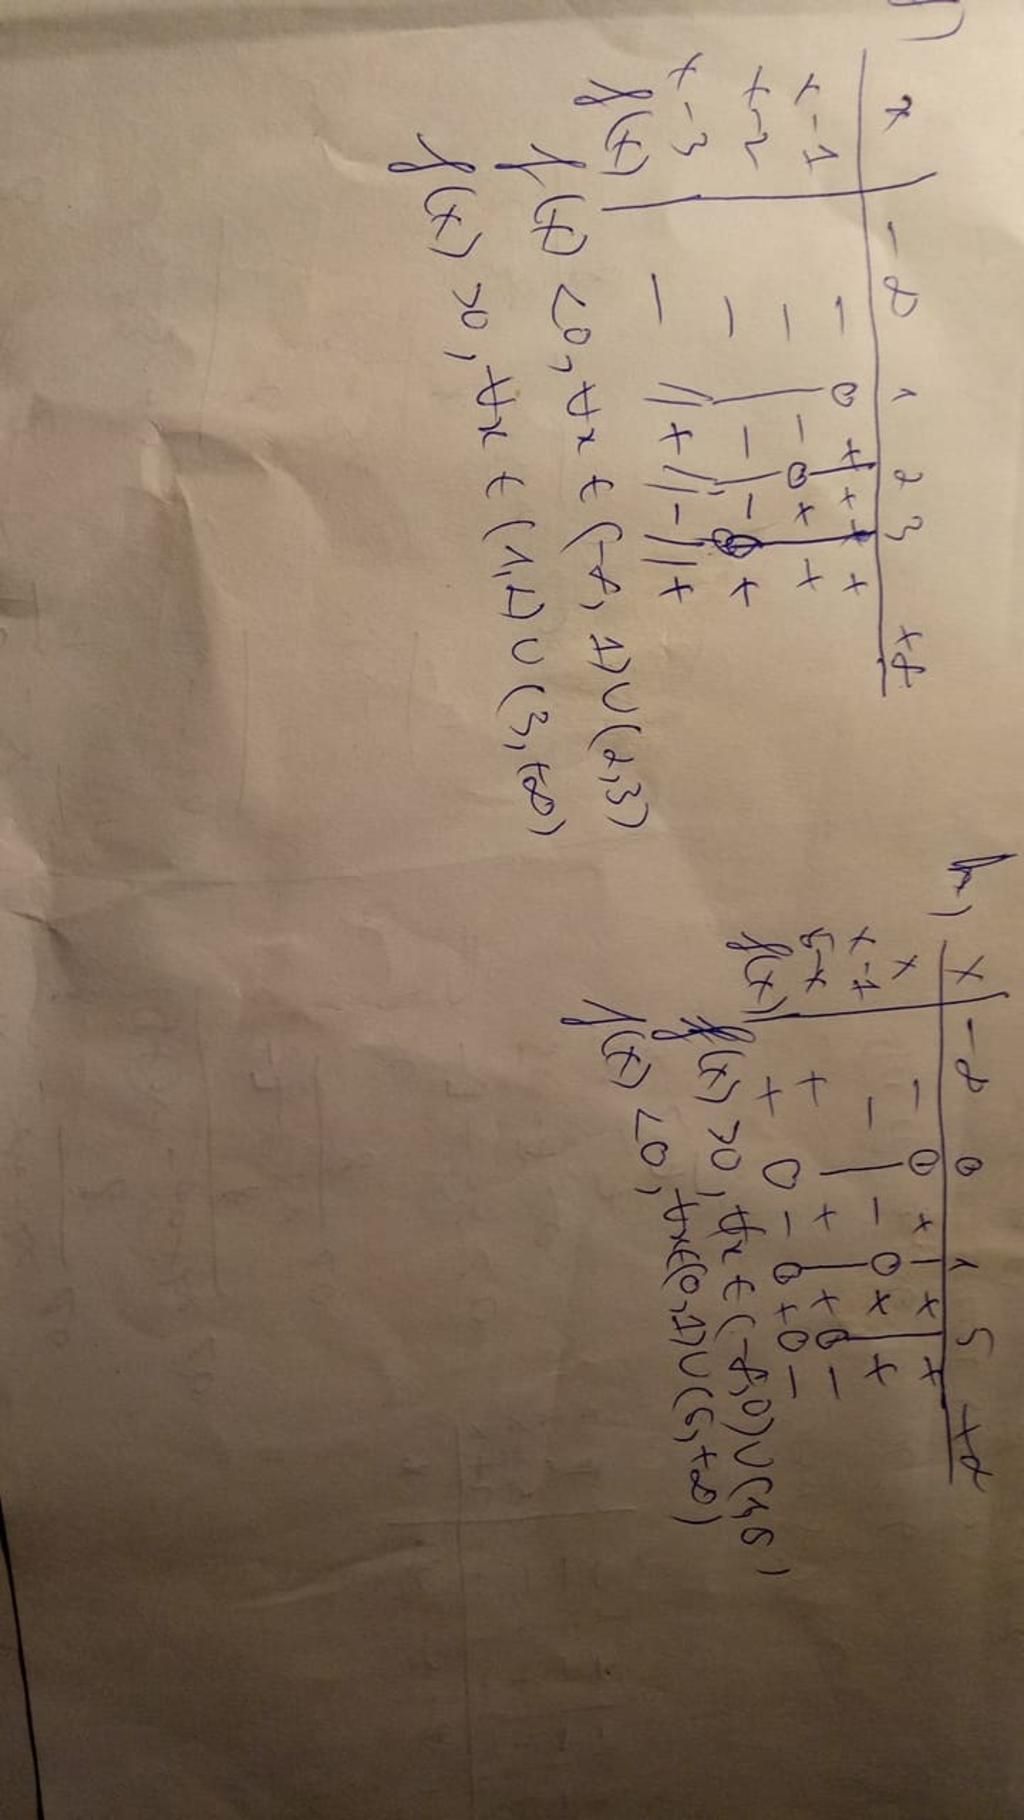 x | -∞ 1 2 3 +∞
x-1 | - 0 + | + | +
x-2 | - | - 0 + | +
x-3 | - | - | - 0 +
f(x) | - || + || - || +
f(x) <0, ∀x ∈ (-∞, 1)∪(2,3)
f(x) >0, ∀x ∈ (1,2)∪(3,+∞)
h)
x | -∞ 0 1 5 +∞
x | - 0 + | + | +
x-1 | - | - 0 + | +
5-x | + | + | + 0 -
f(x) | + 0 - 0 + 0 -
f(x) >0, ∀x ∈ (-∞,0)∪(1,5)
f(x) <0, ∀x∈(0,1)∪(5,+∞)